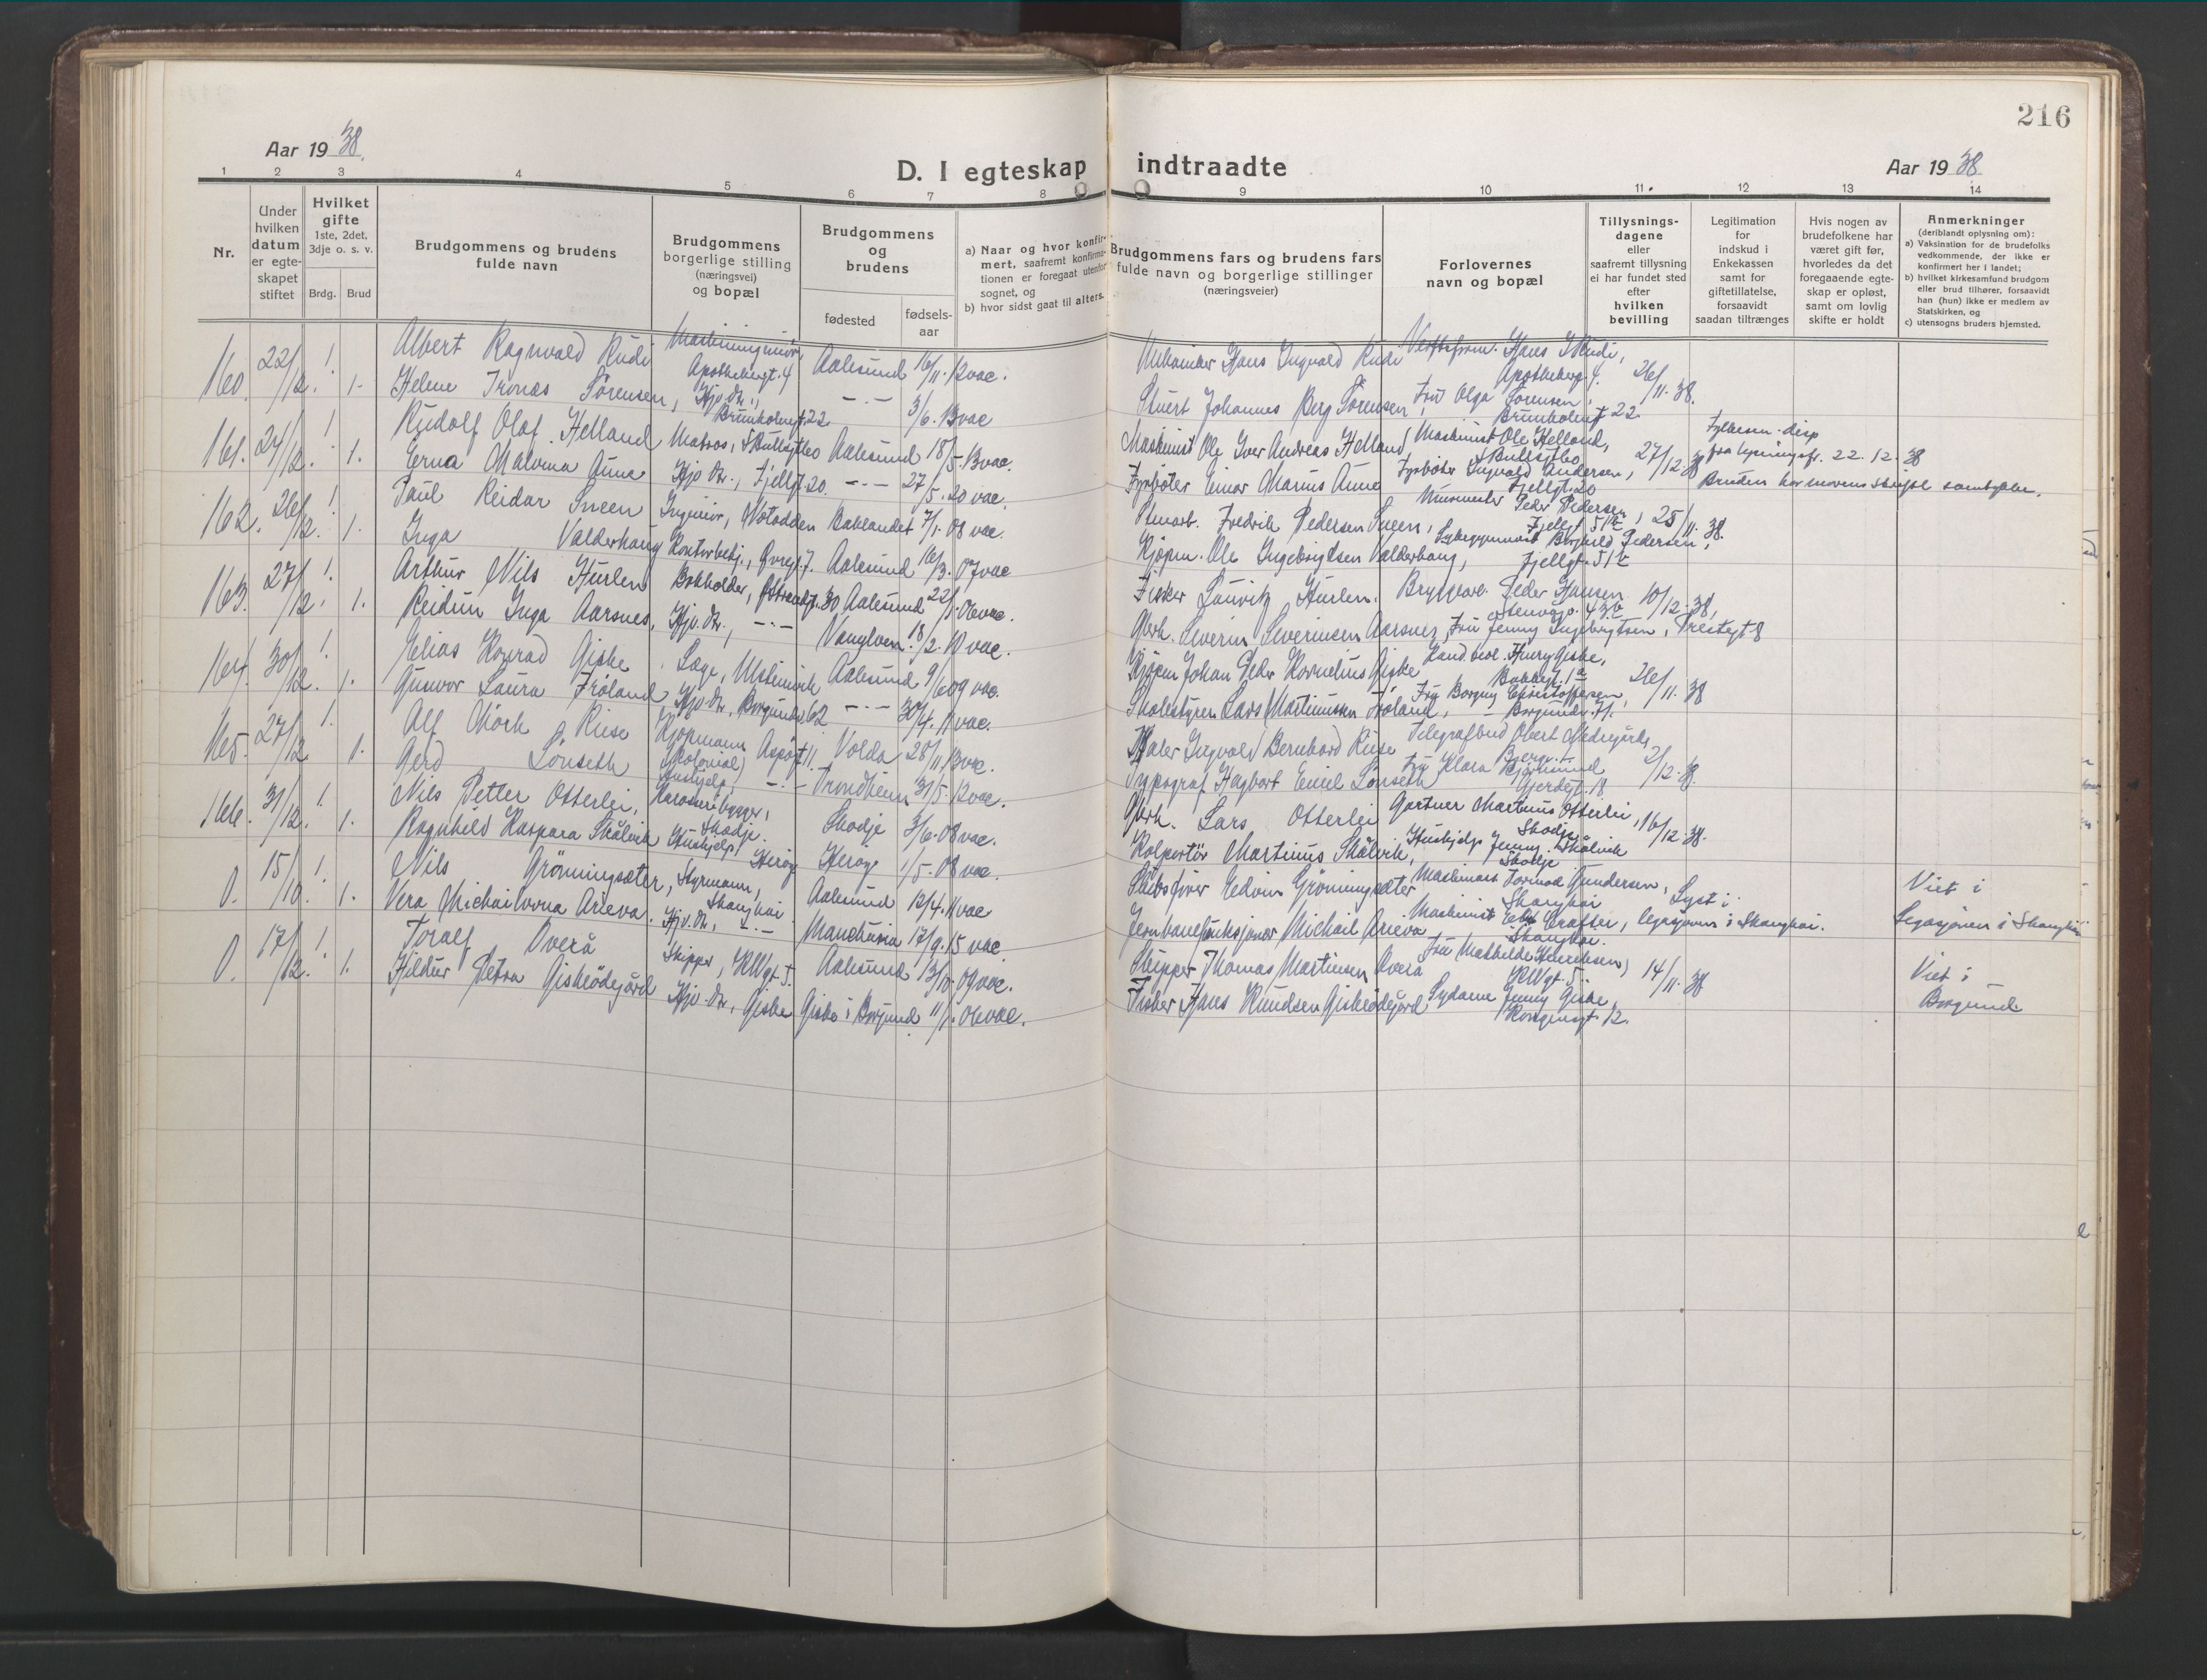 216
Aar 19 38.
D. I egteskap indtraadte
Aar 19 38
1 2 3 4 5 6 7 8 9 10 11 12 13 14
Nr.
Under hvilken datum er egte-skapet stiftet
Hvilket gifte 1ste, 2det, 3dje o. s. v.
Brdg. Brud
Brudgommens og brudens fulde navn
Brudgommens borgerlige stilling (næringsvei) og bopæl
Brudgommens og brudens
fødested
fødsels-aar
a) Naar og hvor konfir-mert, saafremt konfirma-tionen er foregaat utenfor sognet, og
b) hvor sidst gaat til alters.
Brudgommens fars og brudens fars fulde navn og borgerlige stillinger (næringsveier)
Forlovernes navn og bopæl
Tillysnings-dagene eller saafremt tillysning ei har fundet sted efter hvilken bevilling
Legitimation for indskud i Enkekassen samt for giftetillatelse, forsaavidt saadan tiltrænges
Hvis nogen av brudefolkene har været gift før, hvorledes da det foregaaende egte-skap er opløst, samt om lovlig skifte er holdt
Anmerkninger (deriblandt oplysning om):
a) Vaksination for de brudefolks vedkommende, der ikke er konfirmert her i landet;
b) hvilket kirkesamfund brudgom eller brud tilhører, forsaavidt han (hun) ikke er medlem av Statskirken, og
c) utensogns bruders hjemsted.
160. 22/12. 1. Albert Ragnvald Rudi Maskiningeniør Apothekergt. 4 Aalesund 16/11. 12 vac. Mekaniker Hans Ingvald Rudi Hans I Rudi, Apothekerg. 4. 26/11. 38.
1. Helene Tronæs Sörensen, Hjv. Dr., Brunholmgt. 22 - . - 3/6. 13 vac Stuert Johannes Berg Sörensen, Frü Olga Sørensen, Brunholmgt 22
161. 24/12. 1. Rudolf Olaf Helland Matros, Aalesund 18/5. 13 vac. Maskinist Ole Iver Andreas Helland Maskinist Ole Helland, 27/12 38 fra lysningsfr. 22. 12. 38
1. Erna Malvina Aune Hjv. Dr., Fjellgt. 20. - . - 27/5. 20 vac. Fyrbøter Einar Marius Aune Fyrbøter Ingvald Andersen, Fjellgt. 20 Bruden har morens skriftl samtykke.
162. 26/12. 1. Paul Reidar Sneen Ingeniør, Notodden Baklandet 7/1. 08 vac. Fredrik Pedersen Sneen, Murmester Peder Pedersen Fjellgt 51b, 25/11. 38.
1. Inga Valderhaug Kontorbetj., 7. Aalesund 16/3. 07 vac Kjøpm. Ole Ingebrigtsen Valderhaug, Sykegymnast Borghild Pedersen, Fjellgt. 51b
163. 27/12. 1. Arthur Nils Hurlen Bokholder, 30 Aalesund 22/1. 06 vac. Fisker Lauritz Hurlen. Peder Hansen 10/12. 38,
1. Reidun Inga Aarsnes, Hjv. Dr., - . - Vanylven. 18/2. 10 vac. Severin Severinsen Aarsnes, Frü Jenny Ingebrigtsen, Prestegt 8
164. 30/12. 1. Elias Konrad Giske, Læge, Ulsteinvik Aalesund 9/6 09 vac. Kjøpm Johan Peder Kornelius Giske Henry Giske, Bakkegt. 1a 26/11. 38
1. Gunvor Laura Fröland Hjv. Dr, Borgundv 62 - . - 30/4. 11 vac. Skolestyrer Lars Martinussen Fröland, Frü Borgny Christoffersen, Borgundv. 71.
165. 27/12 1. Alf Mörk Riise Kjøpmann (Kolonial) Aspøgt 11. Volda 28/11. 13 vac. Maler Ingvald Bernhard Riise Telegrafbud Obert Nedregård, 2/12. 38.
1. Gerd Lönseth Hushjelp, - . - Trondheim 31/5. 12 vac. Typograf Hagbart Emil Lønseth Frü Klara Gjerdegt. 18
166. 31/12. 1. Nils Petter Otterlei, Karosseribygger, Skodje. Skodje 3/6. 08 vac. Lars Otterlei Gartner Martinus Otterlei, Skodje 16/12. 38.
1. Ragnhild Kaspara Skålvik Hushjelp, Herøy Herøy 1/5. 08 vac. Kolportör Martinus Skålvik, Hushjelp Jenny Skålvik Skodje
0. 15/10. 1. Nils Grönningsæter, Styrmann, Shanghai Aalesund 12/4. 11 vac Skibsfører Edvin Grönningsæter Maskinist Tormod Gundersen, Shanghai Lyst i Viet i
1. Vera Michailovna Arieva. Hjv. Dr, - . - Manchuria 17/9. 15 vac. Jernbanefunksjonær Michail Arieva Maskinist Crafter, Shanghai. legasjonen i Shanghai. Legasjonen i Shanghai
0. 17/12. 1. Toralf Överå Skipper, KWgt. 5. Aalesund 13/10. 09 vac. Skipper Thomas Martinsen Överå Frü Mathilde Henriksen, KWgt. 5. 14/11. 38 Viet i
1. Hildur Petra Giskeödegård Hjv. Dr., Giske Giske i Borgund 11/1. 06 vac. Fisker Hans Knudsen Giskeödegård, Sydame Jenny Giske, Kongensgt. 12. Borgund